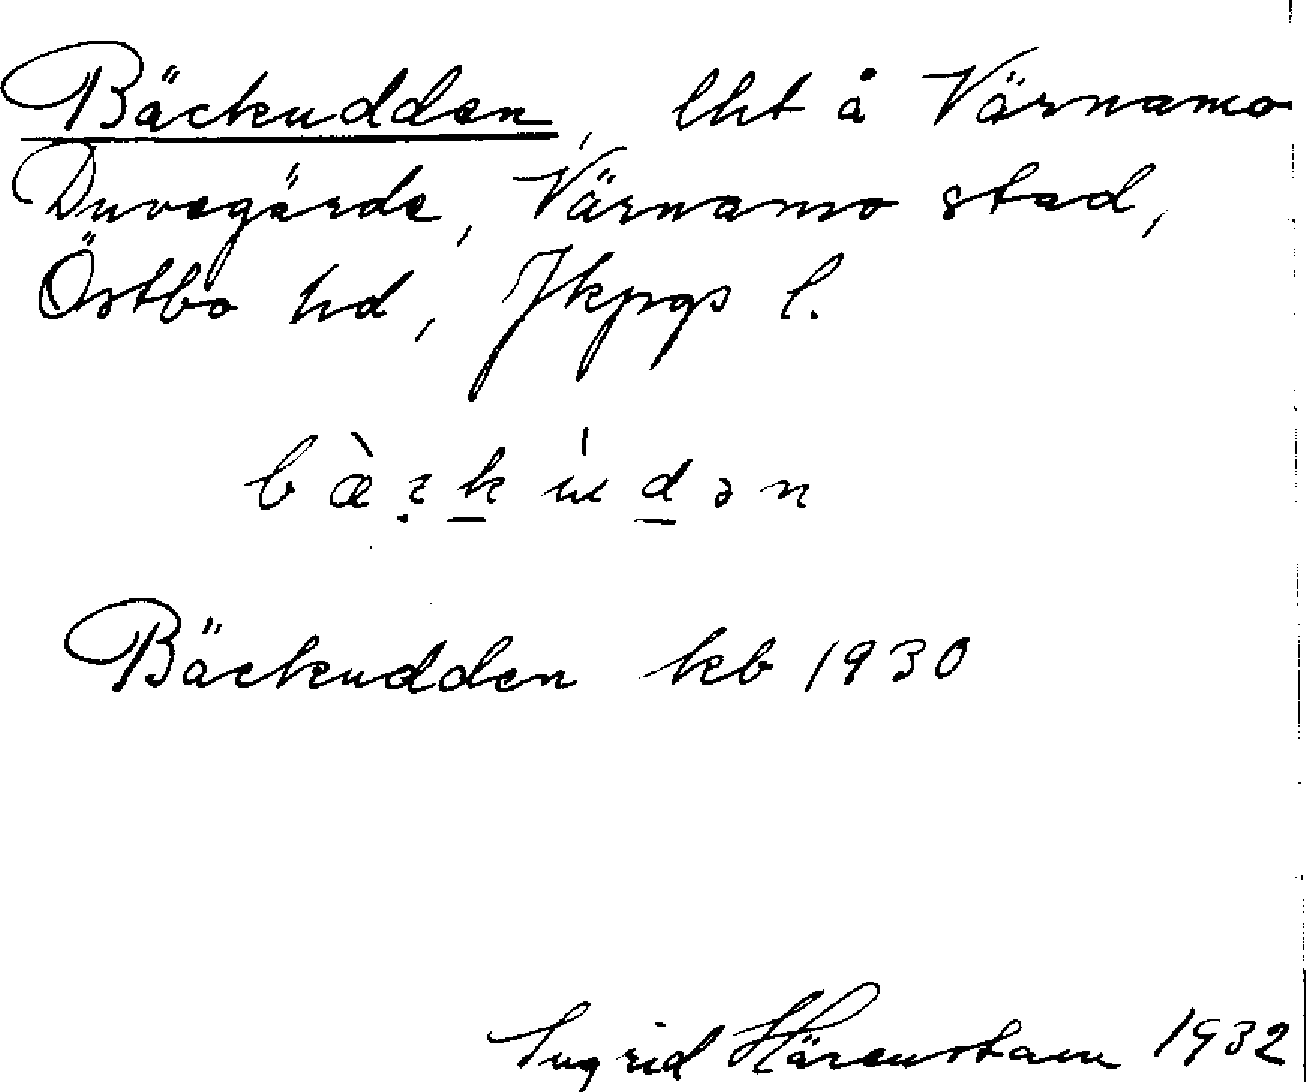 Bäckudden, lht å Värnamo
Duvegärde, Värnamo stad,
Östbo hd, Jkpgs l.
Bäckudden kb 1930
Ingrid Härenstam 1932